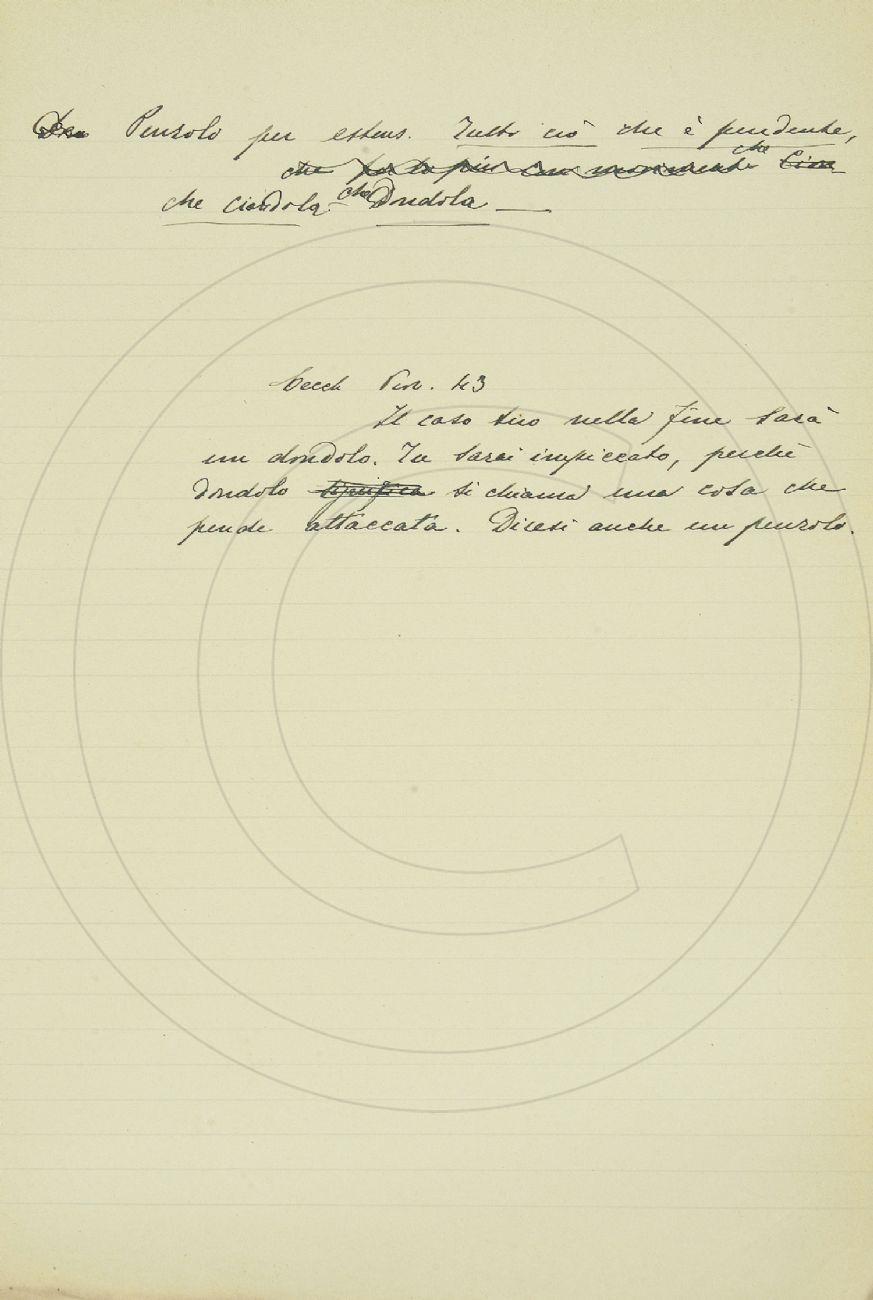 Penzolo per estens. Tutto ciò che è pendente,
che per lo più con movimento che Cion
che ciondola. che Dondola —
Cecch Prov. 43
Il caso tuo nella fine sarà
un dondolo. Tu sarai impiccato, perchè
dondolo significa si chiama una cosa che
pende attaccata. Dicesi anche un penzolo.